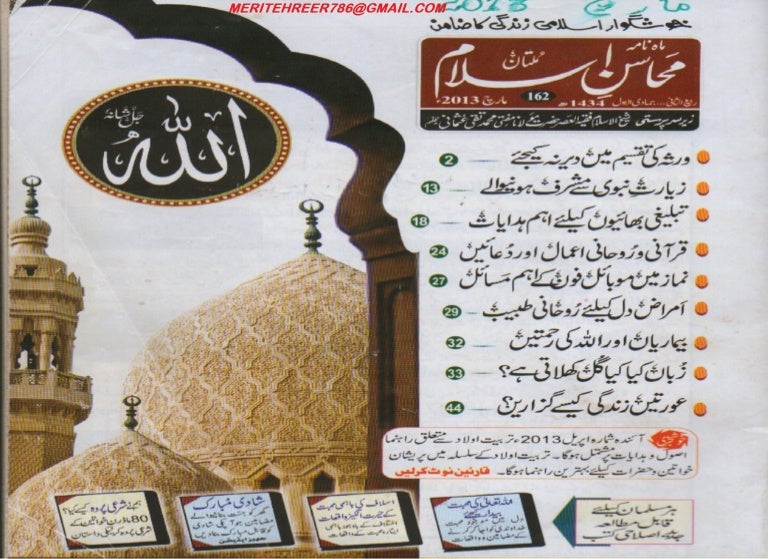 MERITEHREER786@GMAIL.COM
مارچ 2013
خوشگوار اسلامی زندگی کا ضامن
ماہ نامہ
محاسن اسلام ملتان
162
ربیع الثانی... جمادی الاول 1434ھ مارچ 2013ء
زیر سرپرستی شیخ الاسلام فقیہ العصر حضرت مولانا مفتی محمد تقی عثمانی
اللہ جل شانہ
ورثہ کی تقسیم میں دیر نہ کیجئے 2
زیارت نبوی سے مشرف ہونیوالے 13
تبلیغی بھائیوں کیلئے اہم ہدایات 18
قرآنی و روحانی اعمال اور دعائیں 24
نماز میں موبائل فون کے اہم مسائل 27
امراض دل کیلئے روحانی طبیب 29
بیماریاں اور اللہ کی رحمتیں 32
زبان کیا کیا گل کھلاتی ہے؟ 33
عورتیں زندگی کیسے گزاریں؟ 44
خوشخبری آئندہ شمارہ اپریل 2013ء تربیت اولاد سے متعلق راہنما
اصول و ہدایات پر مشتمل ہوگا۔ تربیت اولاد کے سلسلہ میں پریشان
خواتین و حضرات کیلئے بہترین راہنما ہوگا۔ قارئین نوٹ کرلیں
ہر مسلمان کیلئے
قابل مطالعہ
جدید اصلاحی کتب
اللہ تعالیٰ کی محبت
اسلاف کی باہمی محبت
کے حیرت انگیز واقعات
شادی مبارک
80 ماڈرن خواتین کے